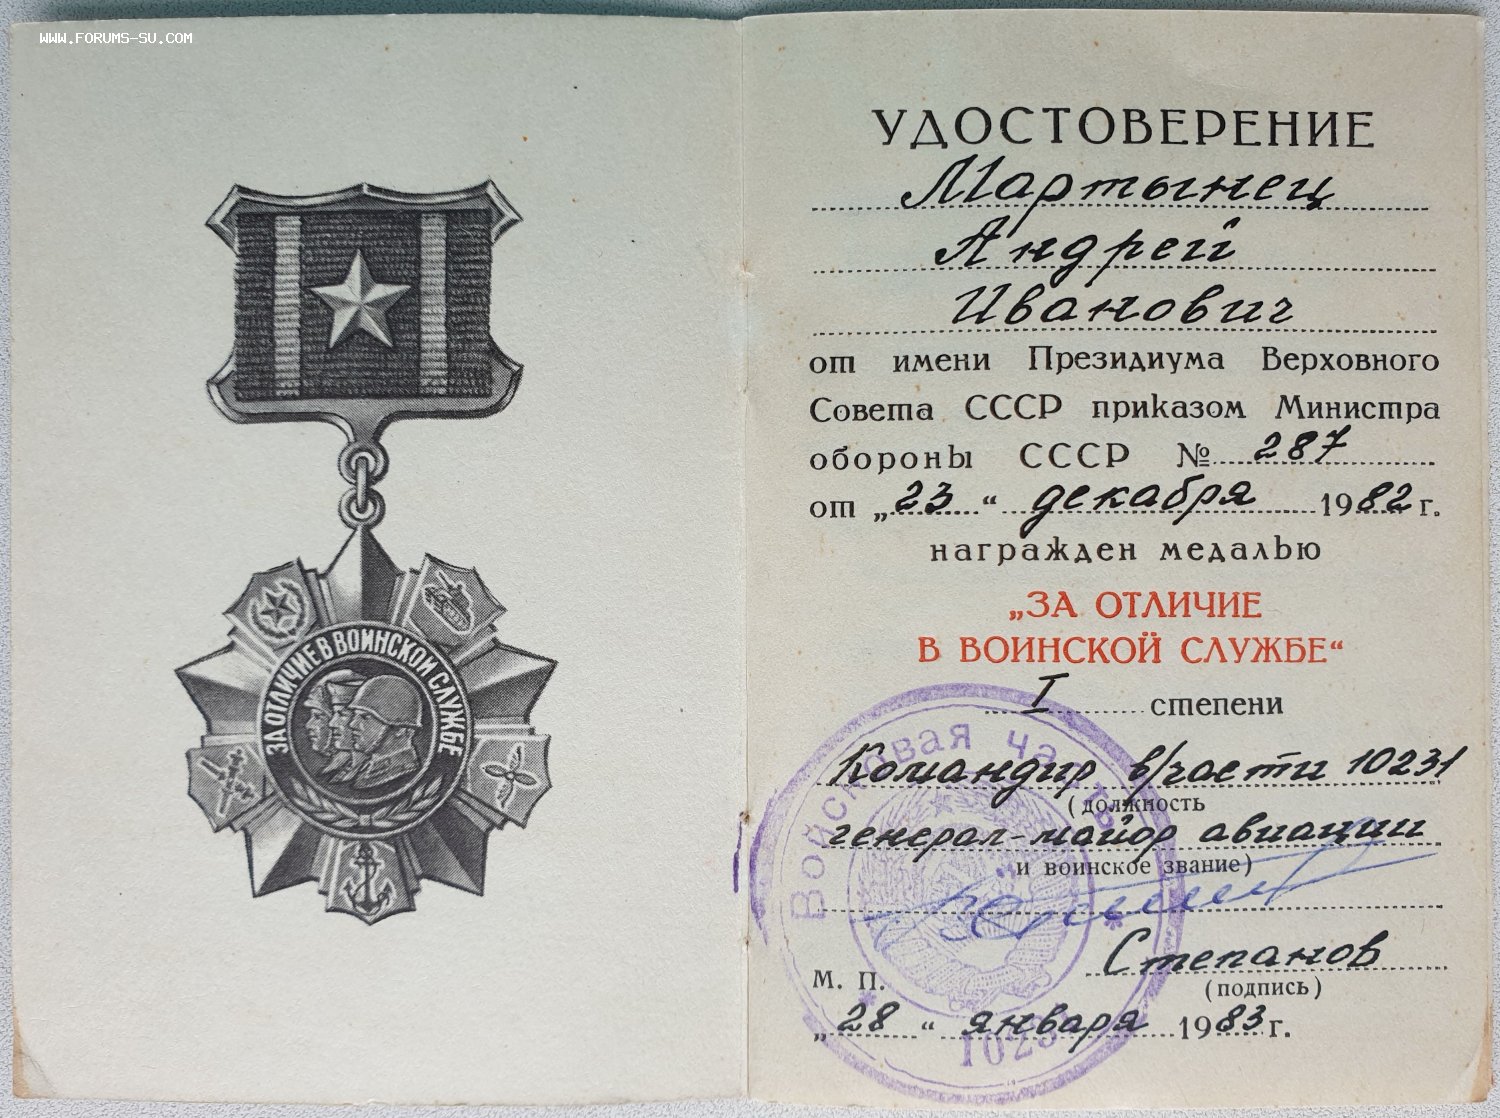 WWW.FORUMS-SU.COM
ЗА ОТЛИЧИЕ В ВОИНСКОЙ СЛУЖБЕ
УДОСТОВЕРЕНИЕ
Мартынец
Андрей
Иванович
от имени Президиума Верховного
Совета СССР приказом Министра
обороны СССР № 287
от „23“ декабря 1982 г.
награжден медалью
„ЗА ОТЛИЧИЕ
В ВОИНСКОЙ СЛУЖБЕ“
I степени
Командир в/части 10231
(должность
генерал-майор авиации
и воинское звание)
Степанов
М. П.
(подпись)
„28“ января 1983 г.
Войсковая часть
10231